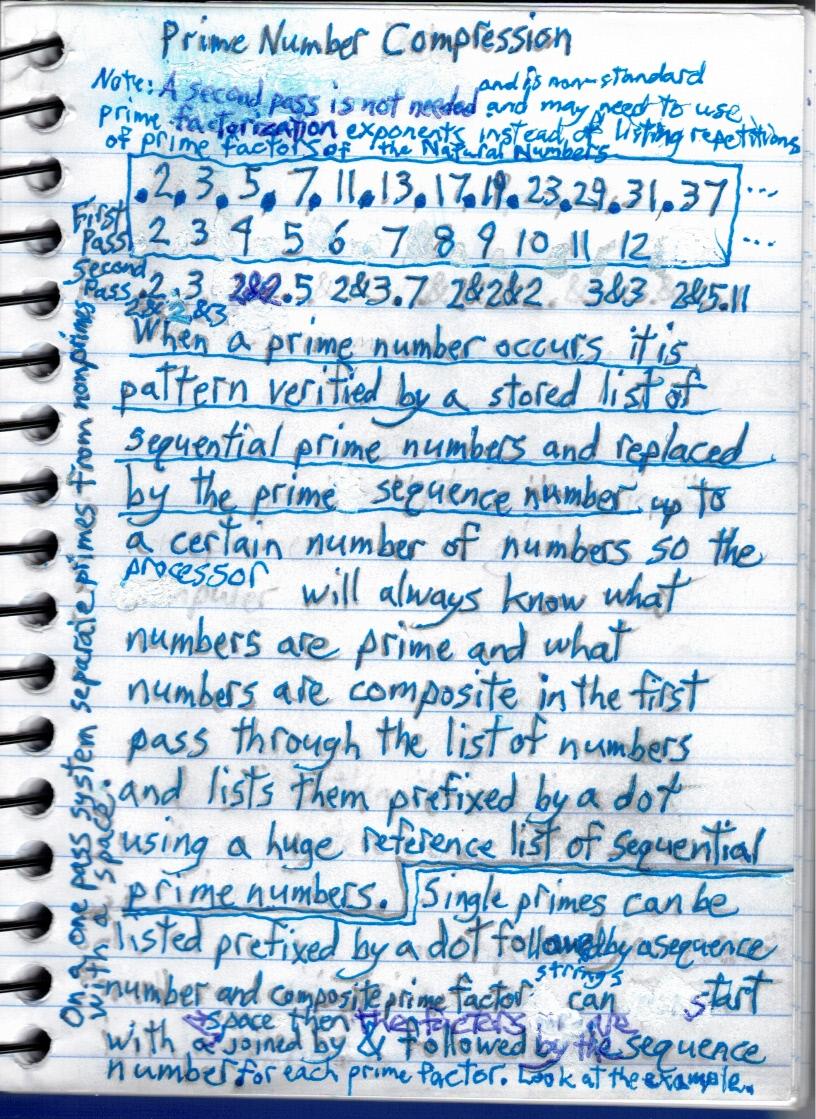 Prime Number Compression
Note: A second pass is not needed and is non-standard
and may need to use
prime factorization exponents instead of listing repetitions
of prime factors of the Natural Numbers
.2.3.5.7.11.13.17.19.23.29.31.37 ...
First Pass 2 3 4 5 6 7 8 9 10 11 12 ...
Second Pass .2 .3 2&2.5 2&3.7 2&2&2 3&3 2&5.11
2&2&3
When a prime number occurs it is
pattern verified by a stored list of
sequential prime numbers and replaced
by the prime sequence number up to
a certain number of numbers so the
processor will always know what
numbers are prime and what
numbers are composite in the first
pass through the list of numbers
and lists them prefixed by a dot
using a huge reference list of sequential
prime numbers. Single primes can be
listed prefixed by a dot followed by a sequence
number and composite prime factor strings can start
with a space then joined by & followed by the sequence
number for each prime factor. Look at the example.
On a one pass system separate primes from nonprimes
with a space.